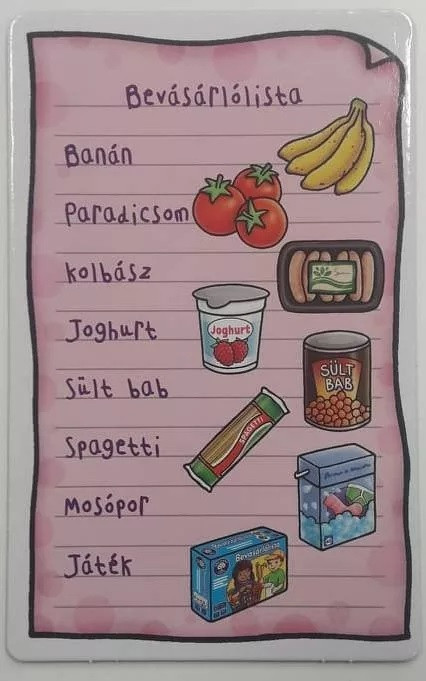 Bevásárlólista
Banán
Paradicsom
Kolbász
Joghurt
Joghurt
Sült bab
SÜLT
BAB
Spagetti
SPAGETTI
Mosópor
Játék
Bevásárlólista